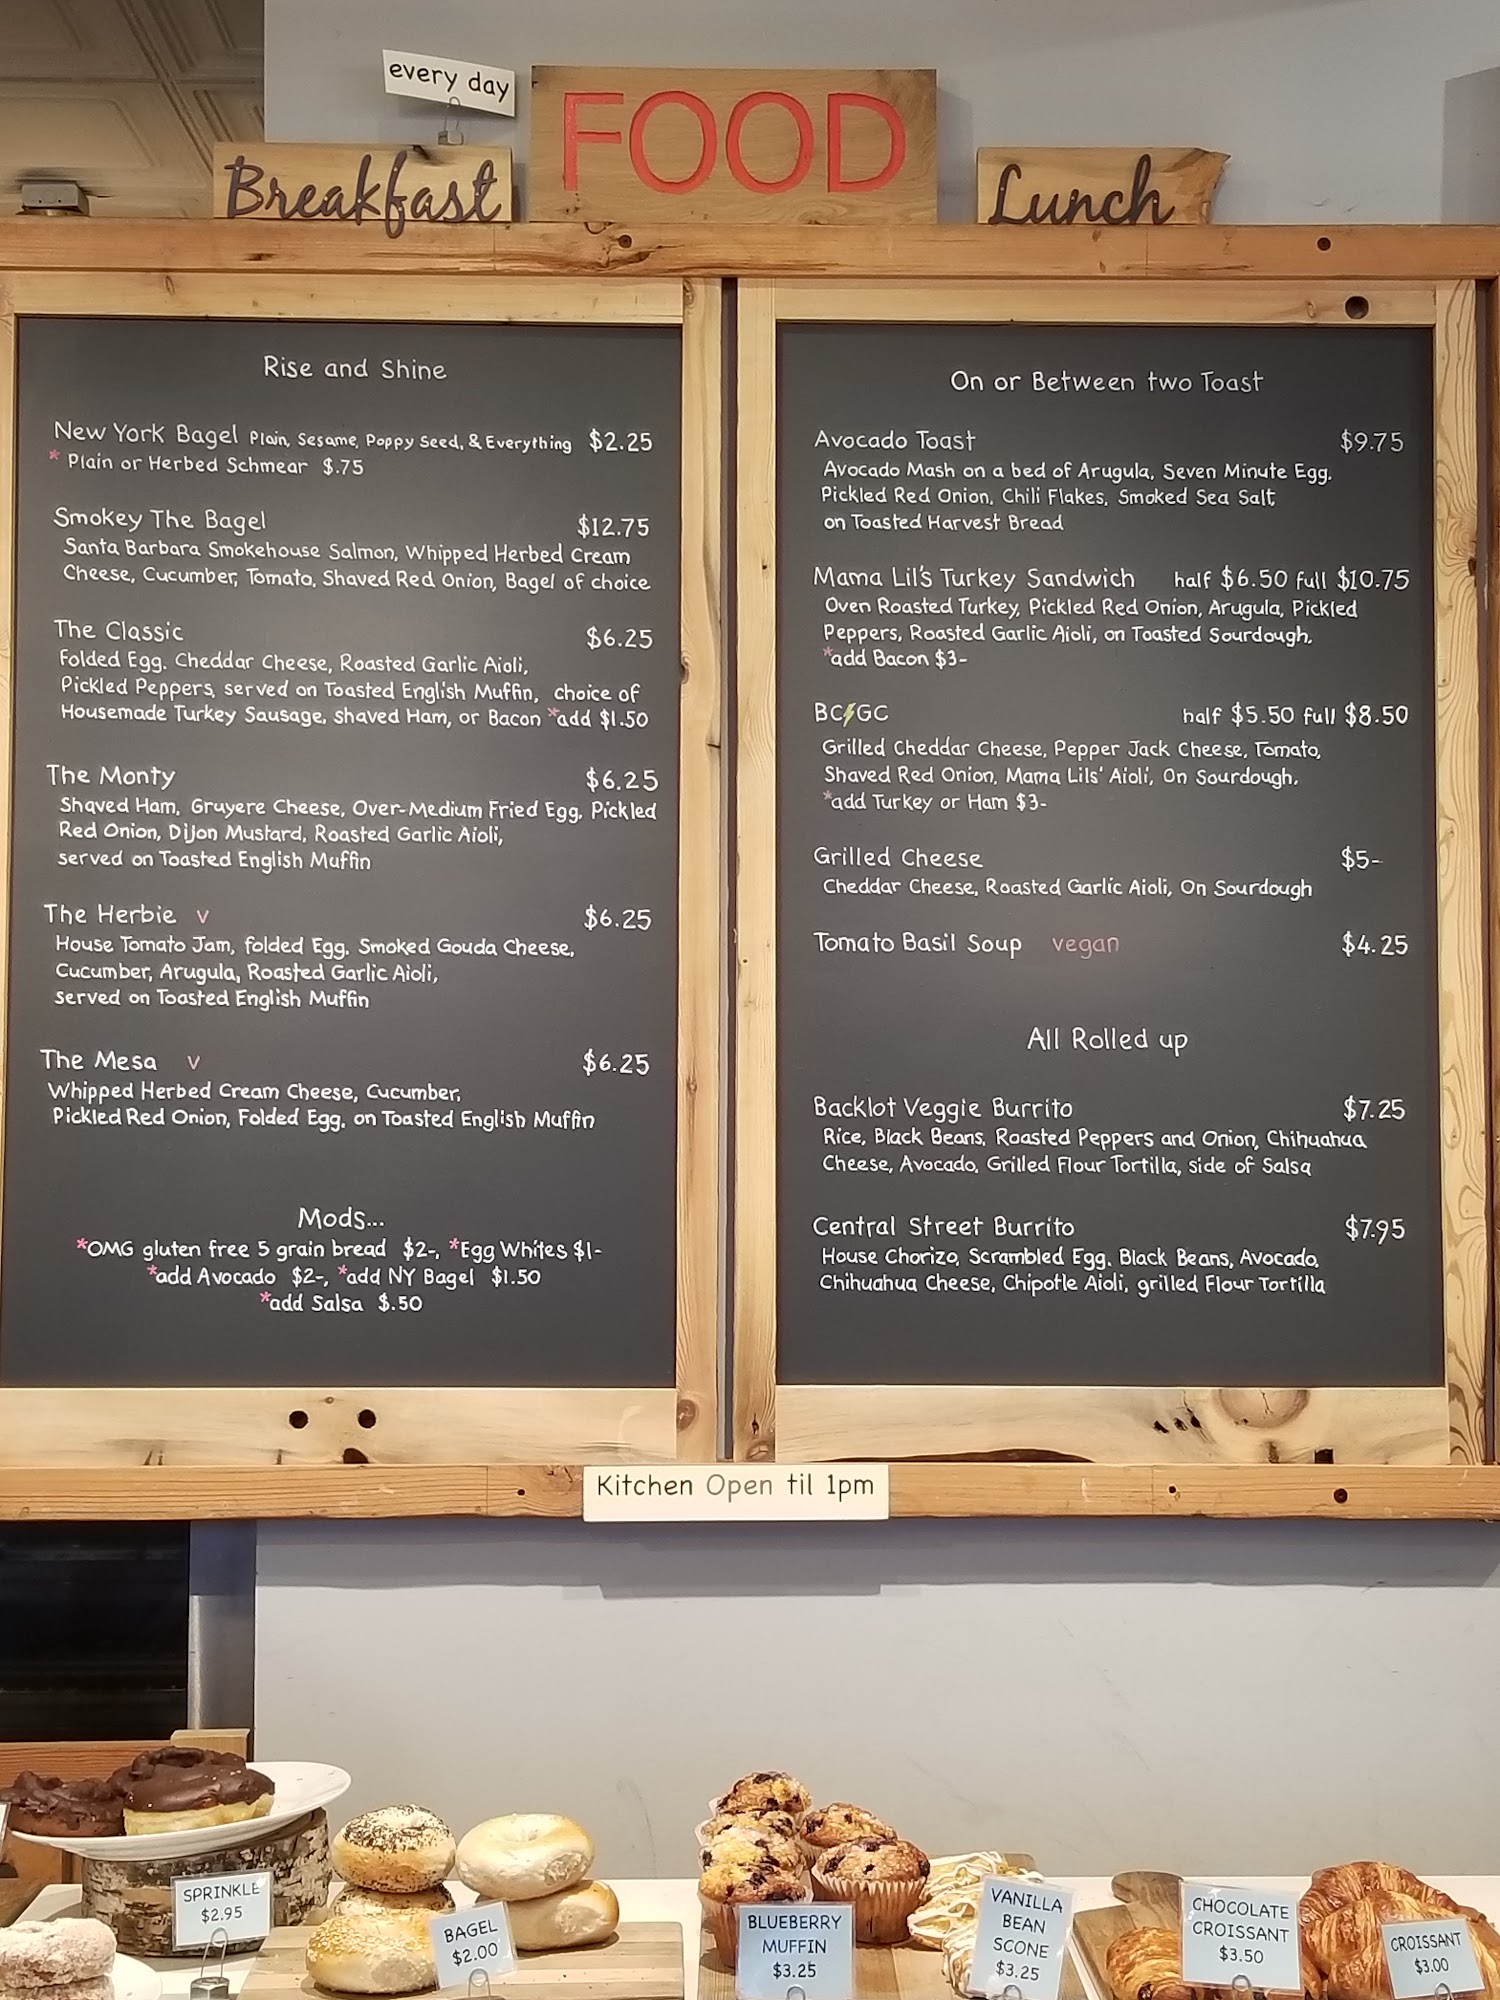 every day
FOOD
Breakfast
Lunch
Rise and Shine
New York Bagel Plain, Sesame, Poppy Seed, & Everything $2.25
* Plain or Herbed Schmear $.75
Smokey The Bagel $12.75
Santa Barbara Smokehouse Salmon, Whipped Herbed Cream
Cheese, Cucumber, Tomato, Shaved Red Onion, Bagel of choice
The Classic $6.25
Folded Egg, Cheddar Cheese, Roasted Garlic Aioli,
Pickled Peppers, served on Toasted English Muffin, choice of
Housemade Turkey Sausage, shaved Ham, or Bacon *add $1.50
The Monty $6.25
Shaved Ham, Gruyere Cheese, Over-Medium Fried Egg, Pickled
Red Onion, Dijon Mustard, Roasted Garlic Aioli,
served on Toasted English Muffin
The Herbie v $6.25
House Tomato Jam, folded Egg, Smoked Gouda Cheese,
Cucumber, Arugula, Roasted Garlic Aioli,
served on Toasted English Muffin
The Mesa v $6.25
Whipped Herbed Cream Cheese, Cucumber,
Pickled Red Onion, Folded Egg, on Toasted English Muffin
Mods...
*OMG gluten free 5 grain bread $2-, *Egg Whites $1-
*add Avocado $2-, *add NY Bagel $1.50
*add Salsa $.50
On or Between two Toast
Avocado Toast $9.75
Avocado Mash on a bed of Arugula, Seven Minute Egg,
Pickled Red Onion, Chili Flakes, Smoked Sea Salt,
on Toasted Harvest Bread
Mama Lil's Turkey Sandwich half $6.50 full $10.75
Oven Roasted Turkey, Pickled Red Onion, Arugula, Pickled
Peppers, Roasted Garlic Aioli, on Toasted Sourdough,
*add Bacon $3-
BC⚡GC half $5.50 full $8.50
Grilled Cheddar Cheese, Pepper Jack Cheese, Tomato,
Shaved Red Onion, Mama Lils' Aioli, On Sourdough,
*add Turkey or Ham $3-
Grilled Cheese $5-
Cheddar Cheese, Roasted Garlic Aioli, On Sourdough
Tomato Basil Soup vegan $4.25
All Rolled up
Backlot Veggie Burrito $7.25
Rice, Black Beans, Roasted Peppers and Onion, Chihuahua
Cheese, Avocado, Grilled Flour Tortilla, side of Salsa
Central Street Burrito $7.95
House Chorizo, Scrambled Egg, Black Beans, Avocado,
Chihuahua Cheese, Chipotle Aioli, grilled Flour Tortilla
Kitchen Open til 1pm
SPRINKLE
$2.95
BAGEL
$2.00
BLUEBERRY
MUFFIN
$3.25
VANILLA
BEAN
SCONE
$3.25
CHOCOLATE
CROISSANT
$3.50
CROISSANT
$3.00